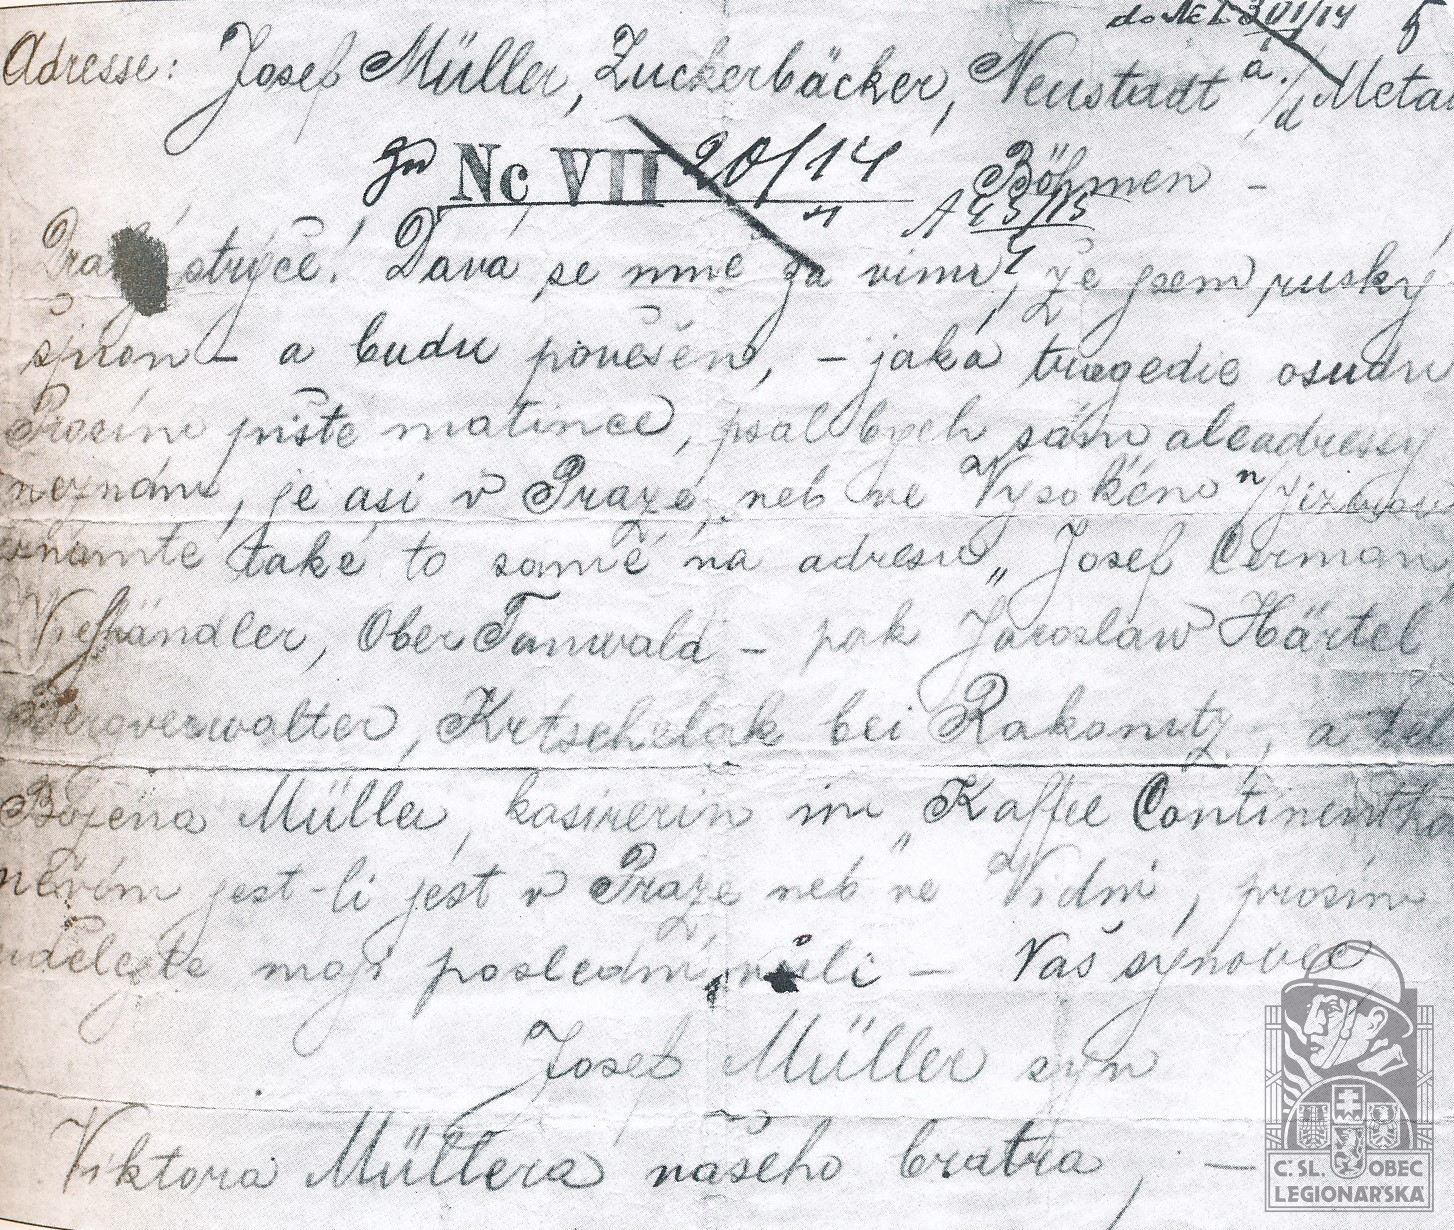 do Nc I 3 VI/14 5
Adresse: Josef Müller, Zuckerbäcker, Neustadt a./d Metau
Nc VII 20/14 Böhmen –
4 A 43/15
4
Drahý strýče! Dává se mně za vinu, že jsem ruský
špion – a budu pověšen, – jaká tragedie osudu
Prosím pište matince, psal bych sám ale adressy
neznám, je asi v Praze, neb ve Vysokém n/Jizerou
známte také to samé na adresu „Josef Cerman,
Viehhändler, Ober Tanwald – pak Jaroslaw Härtel
Bergverwalter, Krtschelak bei Rakonitz, a
Božena Müller, kasirerin im „Kaffee Continenthal
nevím jest-li jest v Praze neb ve Vidni, prosím
udělejte moji poslední vůli – Váš synovec
Josef Müller syn
Viktora Müllera našeho bratra, –
Č. SL. OBEC
LEGIONÁŘSKÁ